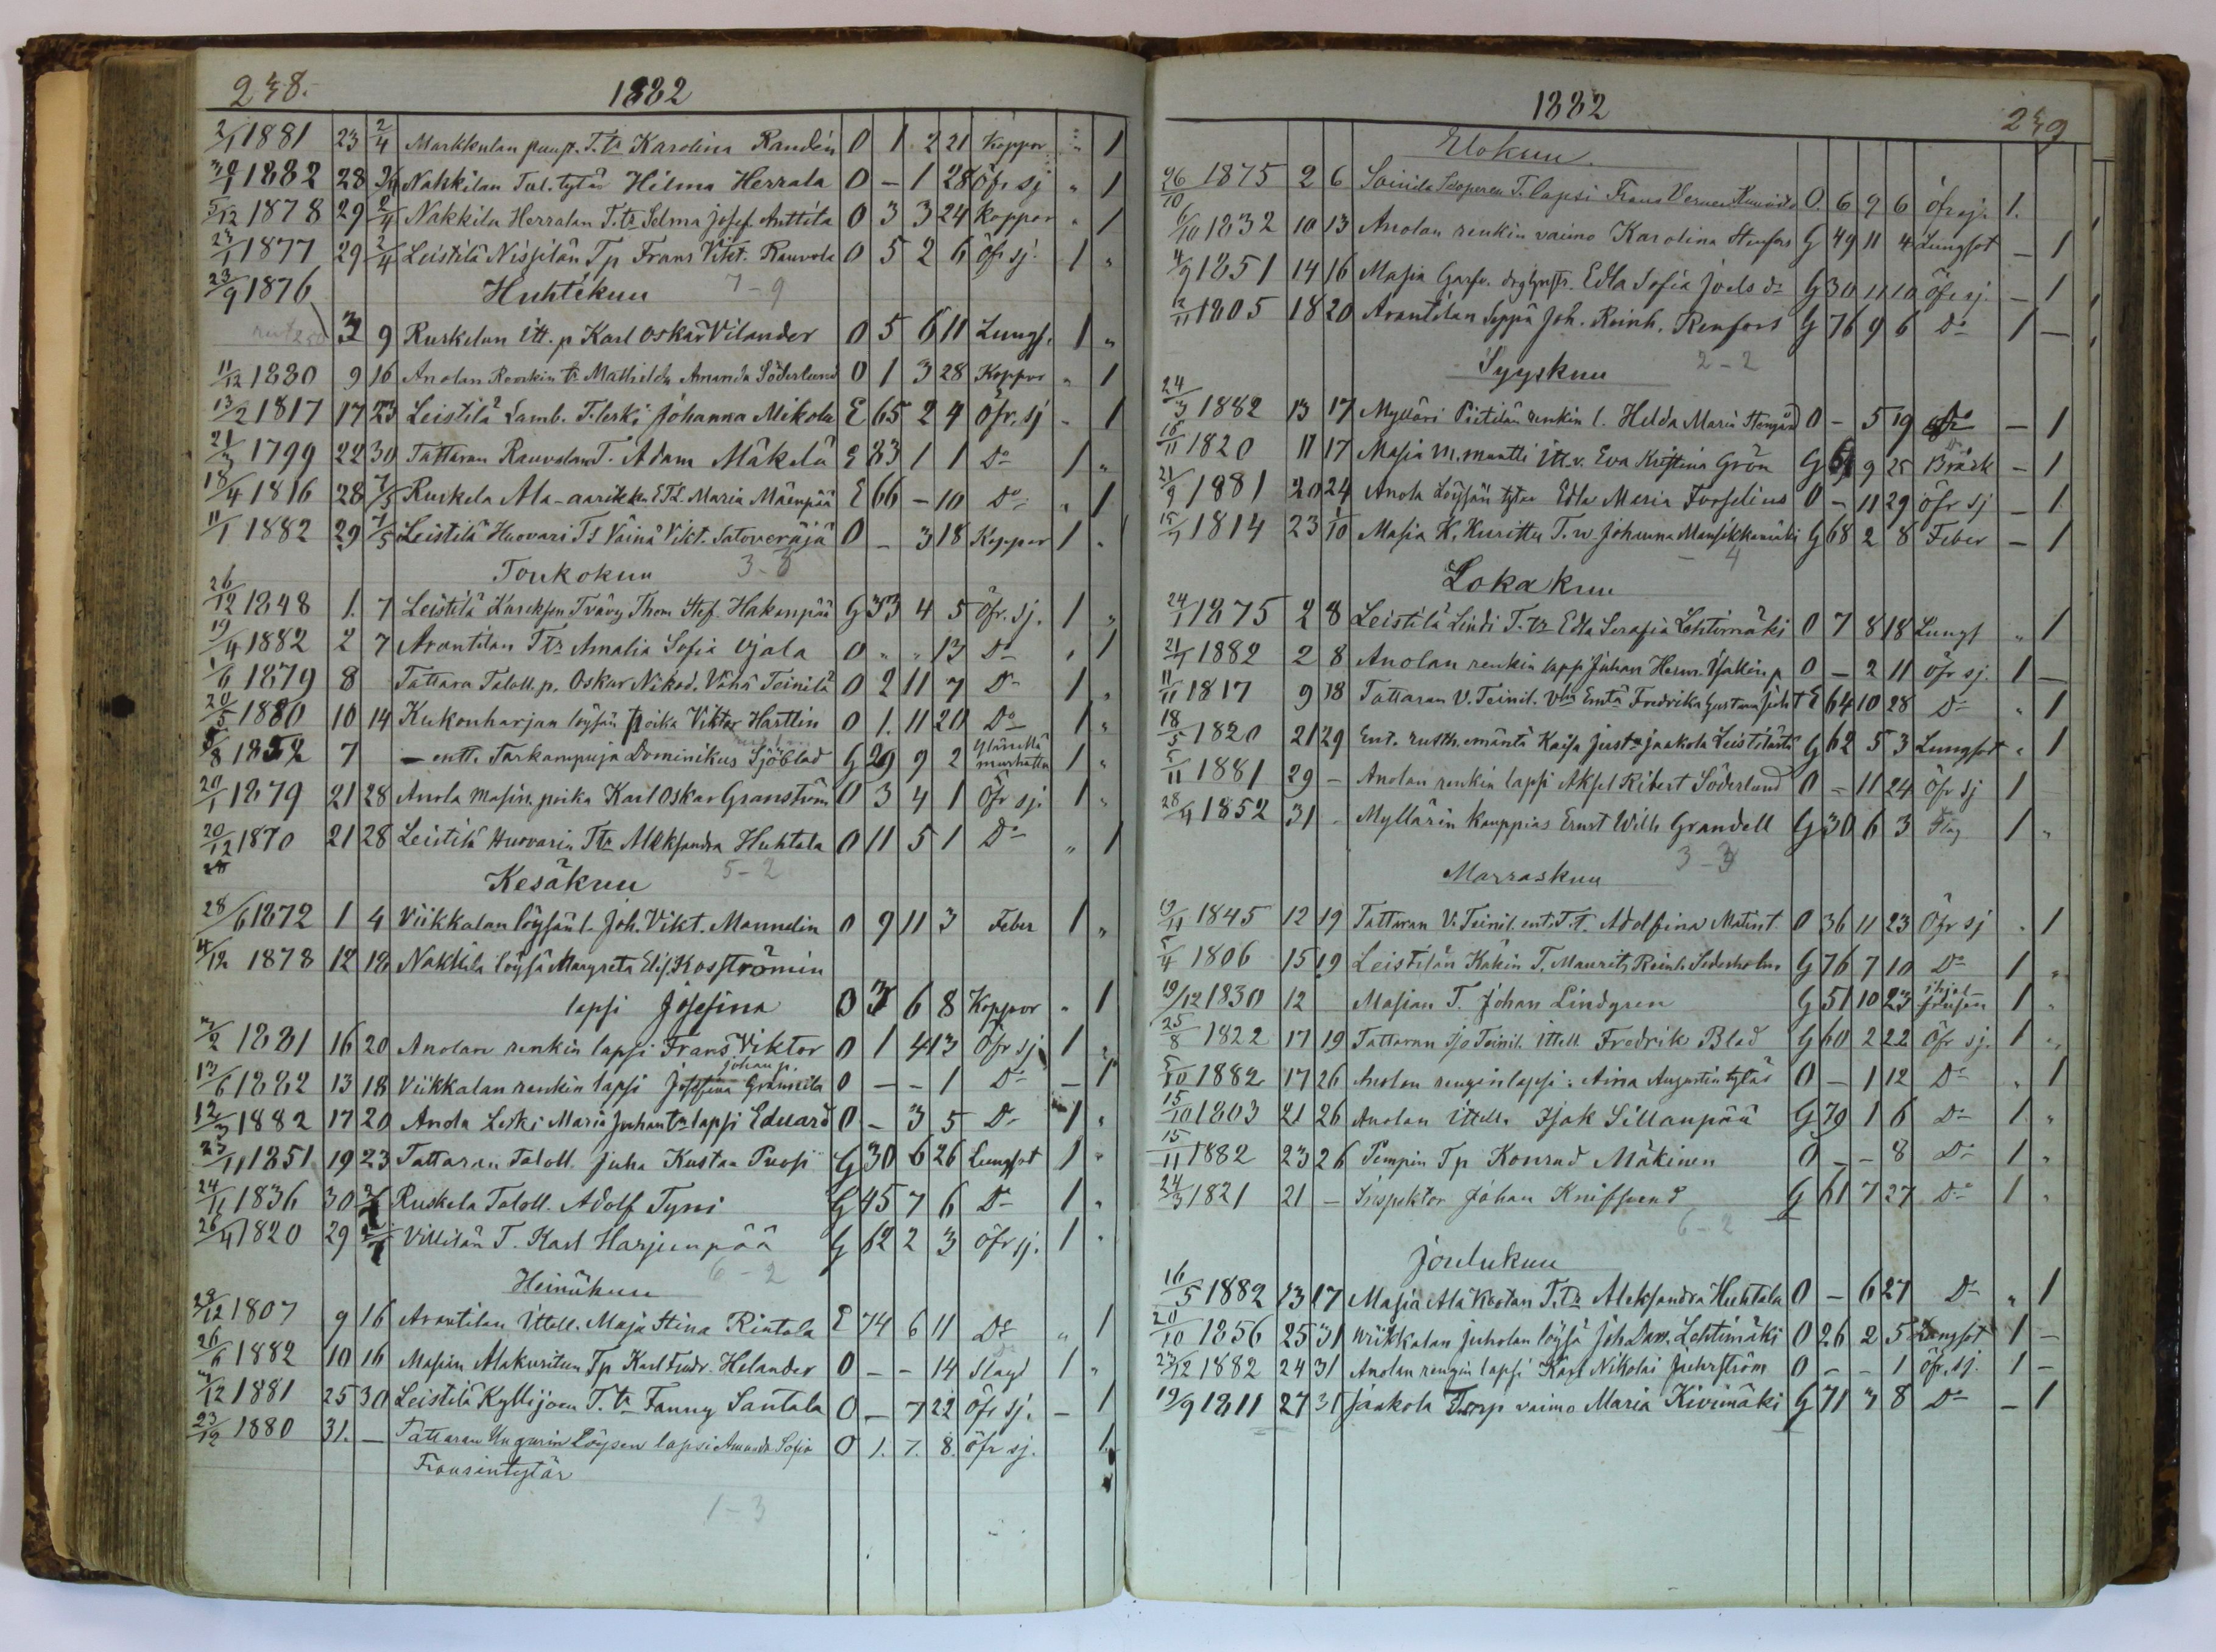 238. 1882
2/1 1881 23 2/4 Markkulan T. tr Karolina Randén 0 1 2 21 Koppor " 1
1882 28 Nakkilan Tal. tytär Hilma Herrala 0 – 1 28 Öfr. sj " 1
5/12 1878 29 2/4 Nakkila Herralan T. tr Selma Josef. Anttila 0 3 3 24 Koppor " 1
23/1 1877 29 2/4 Leistilä Nissilän Tp Frans Vikt. Rauvola 0 5 2 6 Öfr sj. 1 "
23/9 1876 Huhtikuu 7–9
3 9 Ruskelan itt. p Karl Oskar Vilander 0 5 6 11 Lungs. 1 "
11/12 1880 9 16 Anolan Renkin tr Mathilda Amanda Söderlund 0 1 3 28 Koppor " 1
13/2 1817 17 23 Leistilä Lamb. T. leski Johanna Mikola E 65 2 4 Öfr. sj " 1
21/3 1799 22 30 Tattaran Rauvolan T. Adam Mäkelä E 83 1 1 Do 1 "
18/4 1816 28 7/5 Ruskela Ala-aarikka ETL. Maria Mäenpää E 66 – 10 Do " 1
11/1 1882 29 7/5 Leistilä Huovari Ts Väinä Vikt. Satoveräjä 0 – 3 18 Koppor 1 "
Toukokuu 3–8
26/12 1848 1. 7 Leistilä Thom Stef. Hakanpää G 33 4 5 Öfr. sj. 1 "
19/4 1882 2 7 Arantilan T tr Amalia Sofia Ojala 0 " " 13 Do " 1
1/6 1879 8 Tattara Taloll. p. Oskar Nikod. Vähä Teinilä 0 2 11 7 Do 1 "
20/5 1880 10 14 Kukonharjan löysän poika Viktor Harttin 0 1. 11 20 Do 1 "
5/8 1852 7 – entt. Tarkampuja Dominikus Sjöblad G 29 9 2 murhattu 1 "
20/1 1879 21 28 Anola Masin. poika Karl Oskar Granström 0 3 4 1 Öfr sj. 1 "
20/12 1870 21 28 Leistilä Huovarin T tr Aleksandra Huhtala 0 11 5 1 Do " 1
Kesäkuu 5–2
28/6 1872 1 4 Viikkalan löysän l. Joh. Vikt. Mannelin 0 9 11 3 Feber 1 "
4/12 1878 12 18 Nakkila löysä Margreta Elis. Kosströmin
lapsi Josefina 0 3 6 8 Koppor " 1
3/2 1881 16 20 Anolan renkin lapsi Frans Viktor 0 1 4 13 Öfr sj 1 "
Johan p.
13/6 1882 13 18 Viikkalan renkin lapsi Josefiina 0 – – 1 Do – 1
12/3 1882 17 20 Anola Leski Maria Juhan tr lapsi Eduard 0 – 3 5 Do 1 "
23/11 1851 19 23 Tattaran Taloll. Juha Kustaa Puosi G 30 6 26 Lungsot 1 "
24/11 1836 30 Ruskela Taloll. Adolf Tyni G 45 7 6 Do 1 "
26/4 1820 29 Villilän T. Karl Harjunpää G 62 2 3 Öfr sj. 1 "
Heinäkuu 6–2
28/12 1807 9 16 Arantilan Ittell. Maja Stina Rintala E 74 6 11 Do " 1
26/6 1882 10 16 Masian Alakuritun Tp Karl Fredr. Helander 0 – – 14 Slag 1 "
3/12 1881 25 30 Leistilä Kyllijoen T. tr Fanny Santala 0 – 7 22 Öfr sj. – 1
23/12 1880 31. – Tattaran Ungurin Löysen lapsi Amanda Sofia 0 1. 7. 8. öfr sj. 1
Fransintytär
1–3
1882 239
Elokuu
26/10 1875 2 6 T. lapsi Frans Verner 0. 6 9 6 Öfr sj. 1.
6/10 1832 10 13 Anolan renkin vaimo Karolina Stenfors G 49 11 4 Lungsot – 1
4/9 1851 14 16 Masia Edla Sofia Joels dr G 30 11 10 Öfr sj. – 1
12/11 1805 18 20 Arantilan Seppä Joh. Reinh. Renfors G 76 9 6 Do 1 –
Syyskuu 2–2
24/3 1882 13 17 Mylläri Piitilän renkin l. Hilda Maria 0 – 5 19 Do – 1
16/11 1820 11 17 Masia M. muntti itt. v. Eva Kristina Grön G 61 9 25 Bråck – 1
21/9 1881 20 24 Anola Löysän tytär Edla Maria Forselius 0 – 11 29 Öfr sj – 1
15/7 1814 23 10 Masia K. Kurittu T. w. Johanna Mansikkamäki G 68 2 8 Feber – 1
– 4
Lokakuu
24/1 1875 2 8 Leistilä Lindi T. tr Edla Serafia Lehtimäki 0 7 8 18 Lungs " 1
21/7 1882 2 8 Anolan renkin lapsi Juhan Herm. Isakin p 0 – 2 11 öfr sj. 1 –
11/11 1817 9 18 Tattaran V. Teinil. Vha Emtä Fredrika Gustava E 64 10 28 Do " 1
18/5 1820 21 29 Ent. rusth. emäntä Kaisa Just. Jaakola Leistilästä G 62 5 3 Lungsot " 1
5/11 1881 29 – Anolan renkin lapsi Aksel Ribert Söderlund 0 – 11 24 Öfr sj 1
28/4 1852 31 – Myllärin Kauppias Ernst Wilh. Grandell G 30 6 3 Slag 1 "
3–3
Marraskuu
19/11 1845 12 19 Tattaran V. Teinil. ent. T. t. Adolfina Matin t. 0 36 11 23 Öfr sj " 1
5/4 1806 15 19 Leistilän Käkin T. Maurits Reinh. Sederholm G 76 7 10 Do 1 "
19/12 1830 12 Masian T. Johan Lindgren G 51 10 23 ihjel frusen 1 "
25/8 1822 17 19 Tattaran Iso Teinil. Ittell. Fredrik Blad G 60 2 22 Öfr sj. 1 "
5/10 1882 17 26 Anolan renginlapsi: Aina Augustintytär 0 – 1 12 Do " 1
15/10 1803 21 26 Anolan Ittell. Isak Sillanpää G 79 1 6 Do 1 "
15/11 1882 23 26 Pimpin Tp Konrad Mäkinen 0 – – 8 Do 1 "
24/3 1821 21 – Inspektor Johan Kniffsend G 61 7 27 Do 1 "
6–2
Joulukuu
16/5 1882 13 17 Masia Ala Kootan T. tr Aleksandra Huhtala 0 – 6 27 Do " 1
20/10 1856 25 31 Wiikkalan Juholan löysä Joh. Dan. Lehtimäki 0 26 2 5 Lungsot 1 –
23/12 1882 24 31 Anolan rengin lapsi Karl Nikolai Juhrström 0 – – 1 öfr. sj. 1 –
19/9 1811 27 31 Jaakola Torp vaimo Maria Kivimäki G 71 3 8 Do – 1